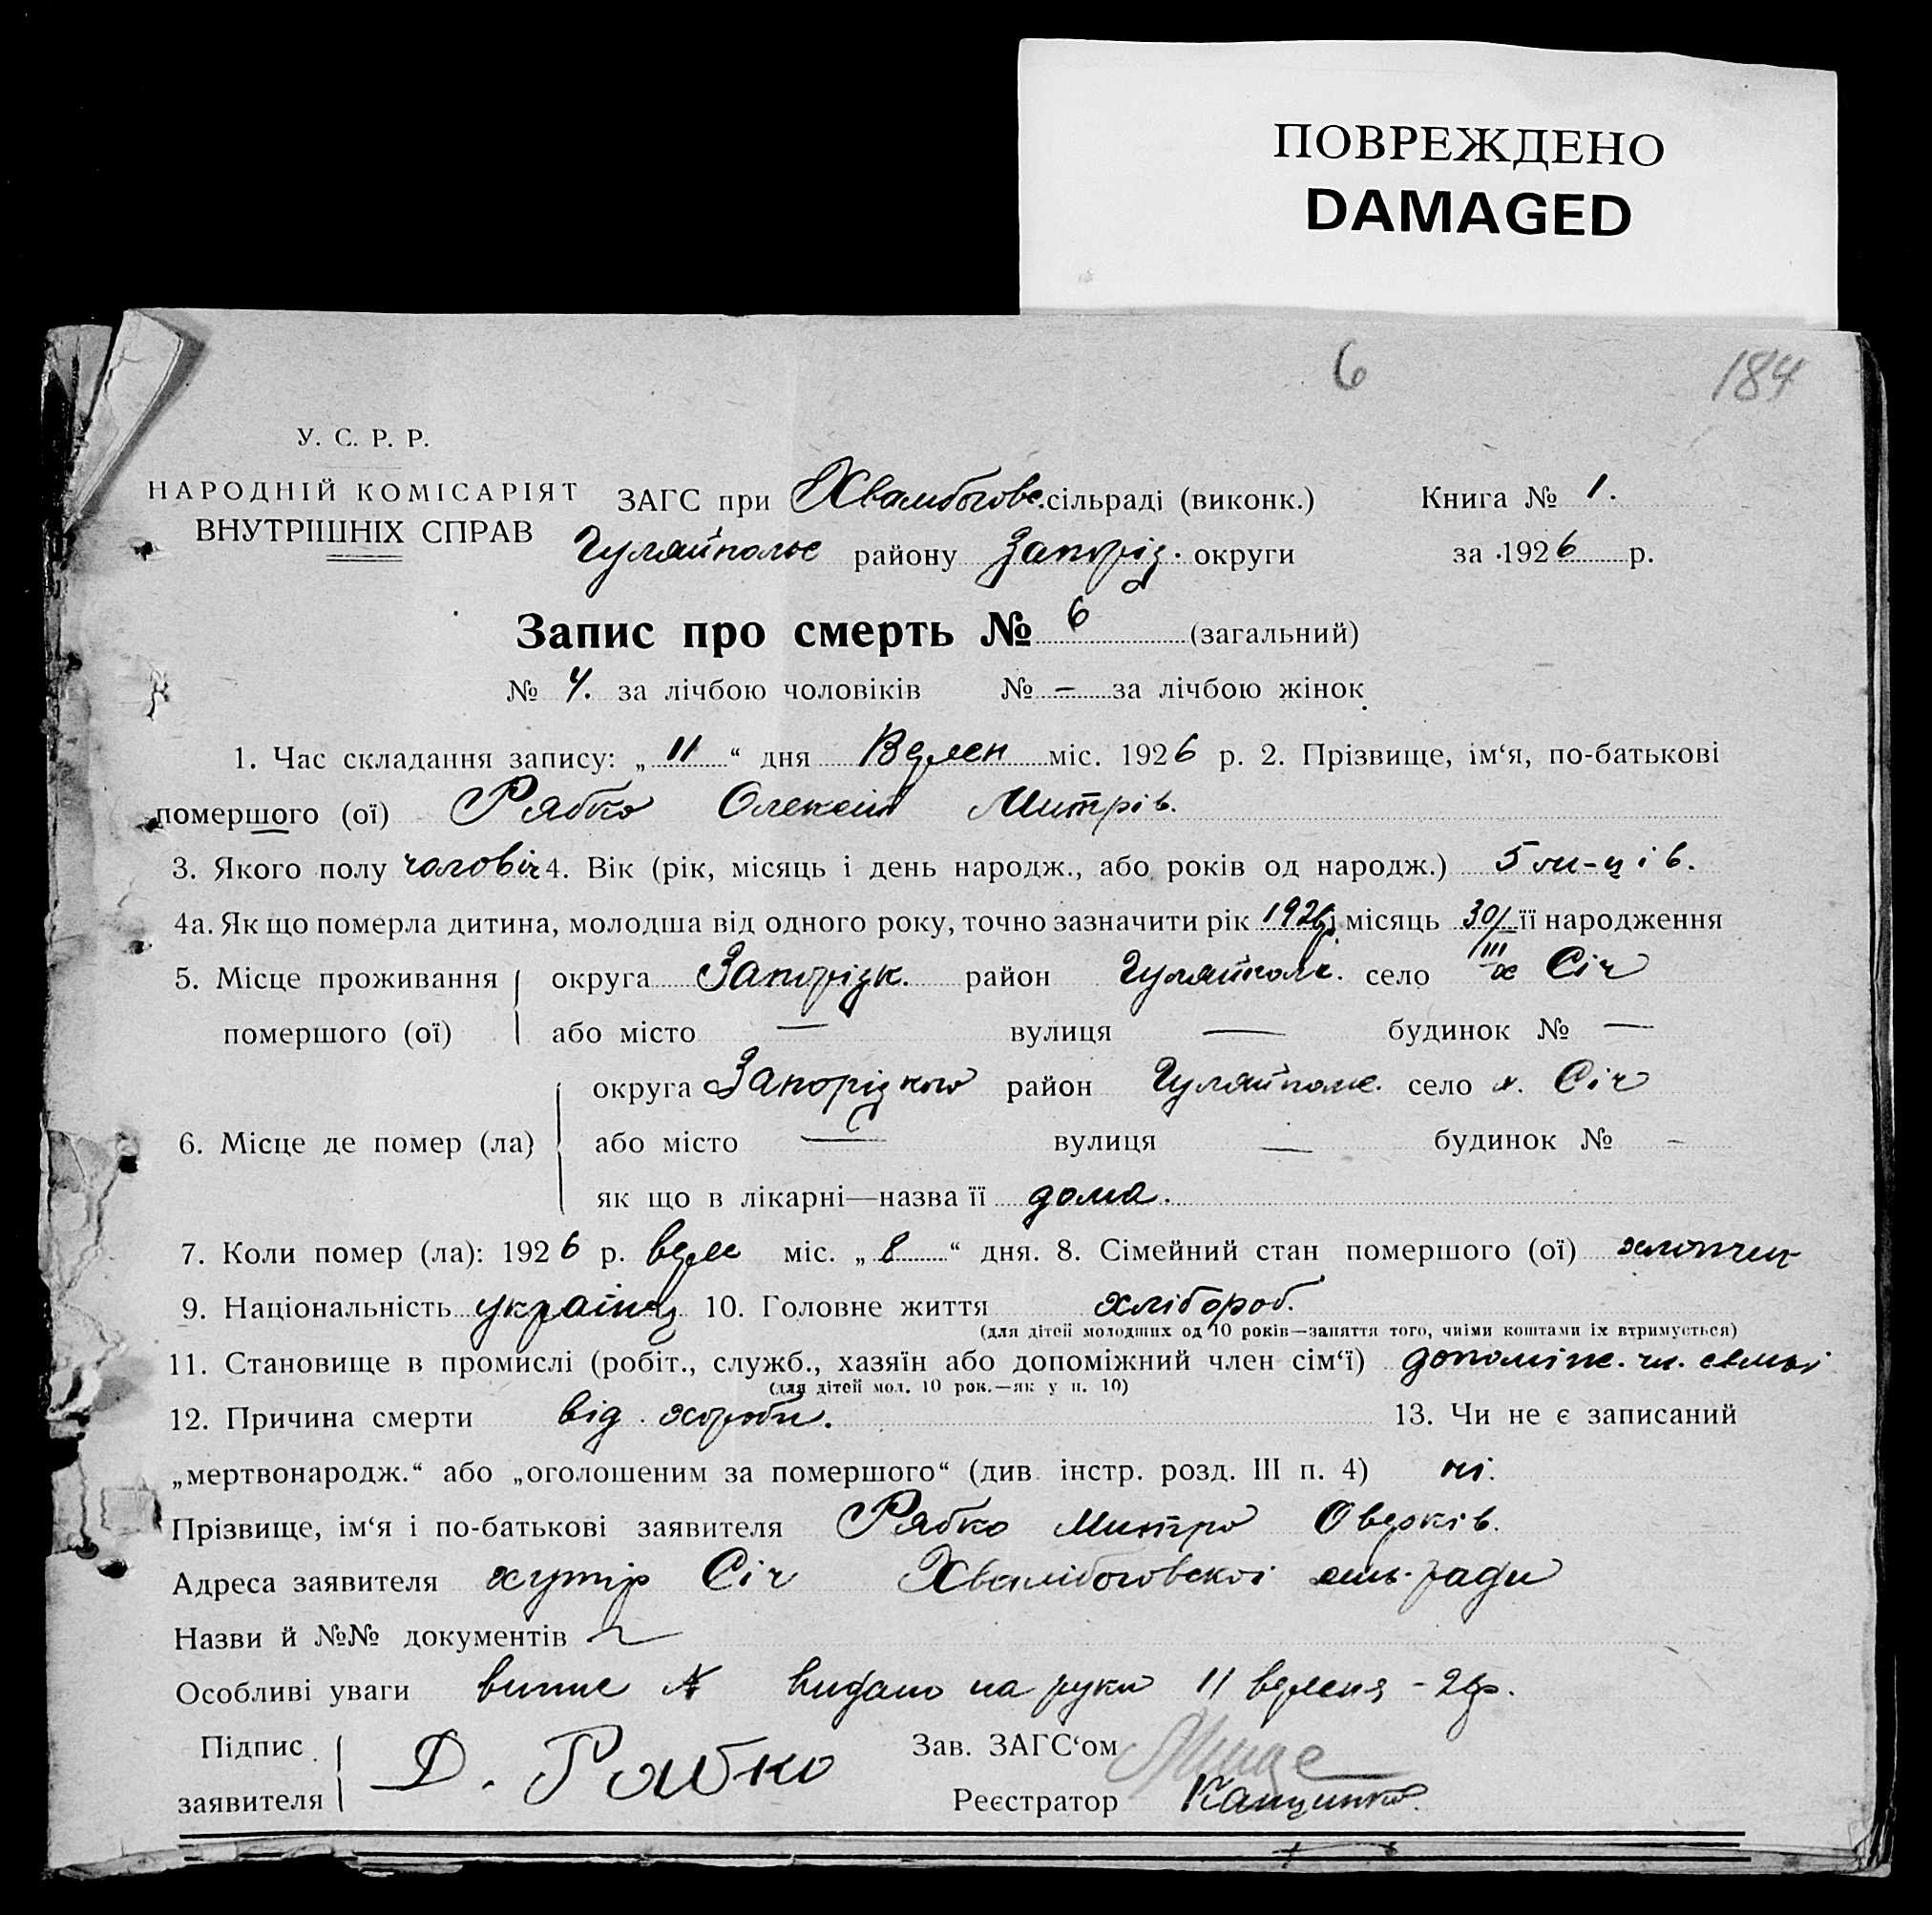 ПОВРЕЖДЕНО
DAMAGED
6 184
У. С. Р. Р.
НАРОДНІЙ КОМІСАРІЯТ
ВНУТРІШНІХ СПРАВ
ЗАГС при Хвалибогове. сільраді (виконк.) Книга № 1.
Гуляйполье району Запоріз. округи за 1926 р.
Запис про смерть № 6 (загальний)
№ 4. за лічбою чоловіків № — за лічбою жінок
1. Час складання запису: „ 11 “ дня Верен міс. 1926 р. 2. Прізвище, ім‘я, по-батькові
помершого (ої) Рябко Олексій Митрів.
3. Якого полу чоловіч 4. Вік (рік, місяць і день народж., або років од народж.) 5 м-ців.
4а. Як що померла дитина, молодша від одного року, точно зазначити рік 1926 р. місяць 30/III її народження
5. Місце проживання округа Запорізк. район Гуляйполе. село х Січ
помершого (ої) або місто — вулиця — будинок № —
округа Запорізкого район Гуляйполе. село х. Січ
6. Місце де помер (ла) або місто — вулиця — будинок № -
як що в лікарні—назва її дома.
7. Коли помер (ла): 1926 р. вере міс. „ 8 “ дня. 8. Сімейний стан помершого (ої) хлопчик
9. Національність українец 10. Головне життя хлібороб.
(для дітей молодших од 10 років—заняття того, чиїми коштами їх втримується)
11. Становище в промислі (робіт., служб., хазяїн або допоміжний член сім‘ї) допоміж. чл. семьі
(для дітей мол. 10 рок.—як у п. 10)
12. Причина смерти від хороби. 13. Чи не є записаний
„мертвонародж.“ або „оголошеним за помершого“ (див. інстр. розд. III п. 4) ні.
Прізвище, ім‘я і по-батькові заявителя Рябко Митро Оверків.
Адреса заявителя хутір Січ Хвалібоговскоі сіль-ради
Назви й №№ документів
Особливі уваги випис № видано на руки 11 вересня - 26р.
Підпис Зав. ЗАГС‘ом
заявителя Д. Рябко Реєстратор